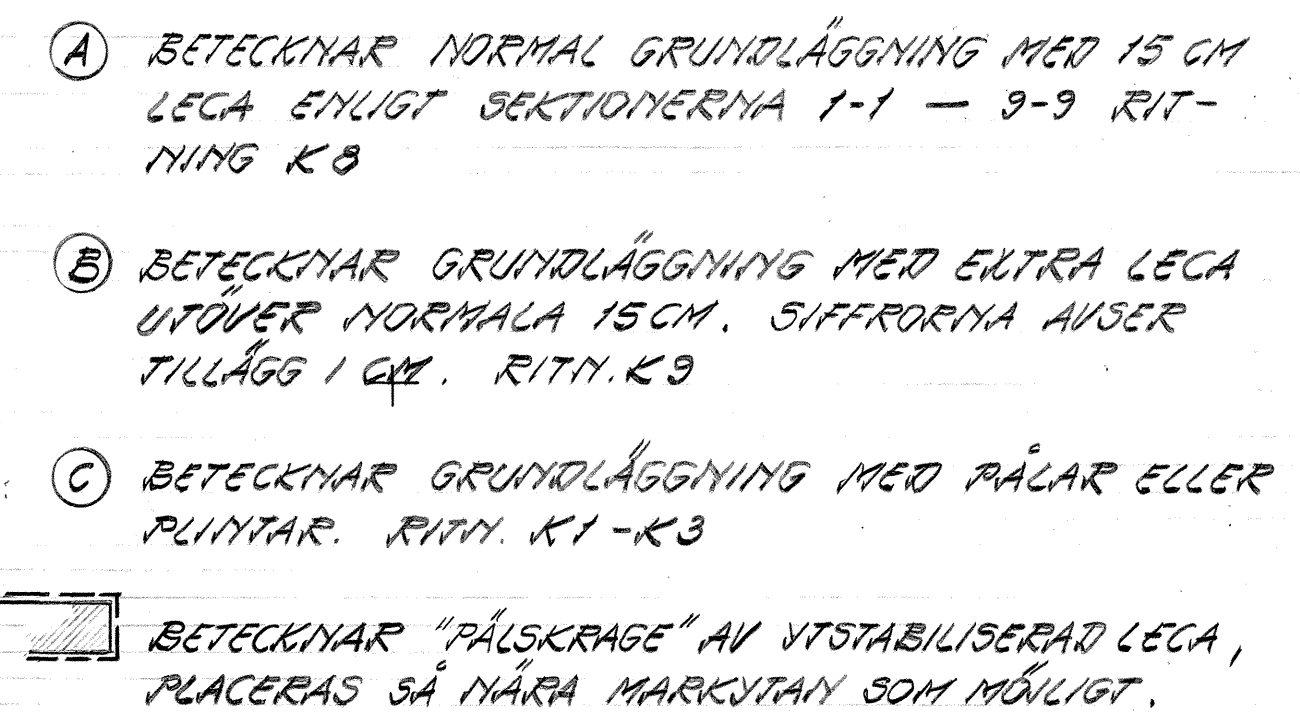 A BETECKNAR NORMAL GRUNDLÄGGNING MED 15 CM
LECA ENLIGT SEKTIONERNA 1-1 — 9-9 RIT-
NING K8
B BETECKNAR GRUNDLÄGGNING MED EXTRA LECA
UTÖVER NORMALA 15CM. SIFFRORNA AVSER
TILLÄGG I CM. RITN. K9
C BETECKNAR GRUNDLÄGGNING MED PÅLAR ELLER
PLINTAR. RITN. K1-K3
BETECKNAR "PÄLSKRAGE" AV YTSTABILISERAD LECA,
PLACERAS SÅ NÄRA MARKYTAN SOM MÖJLIGT.